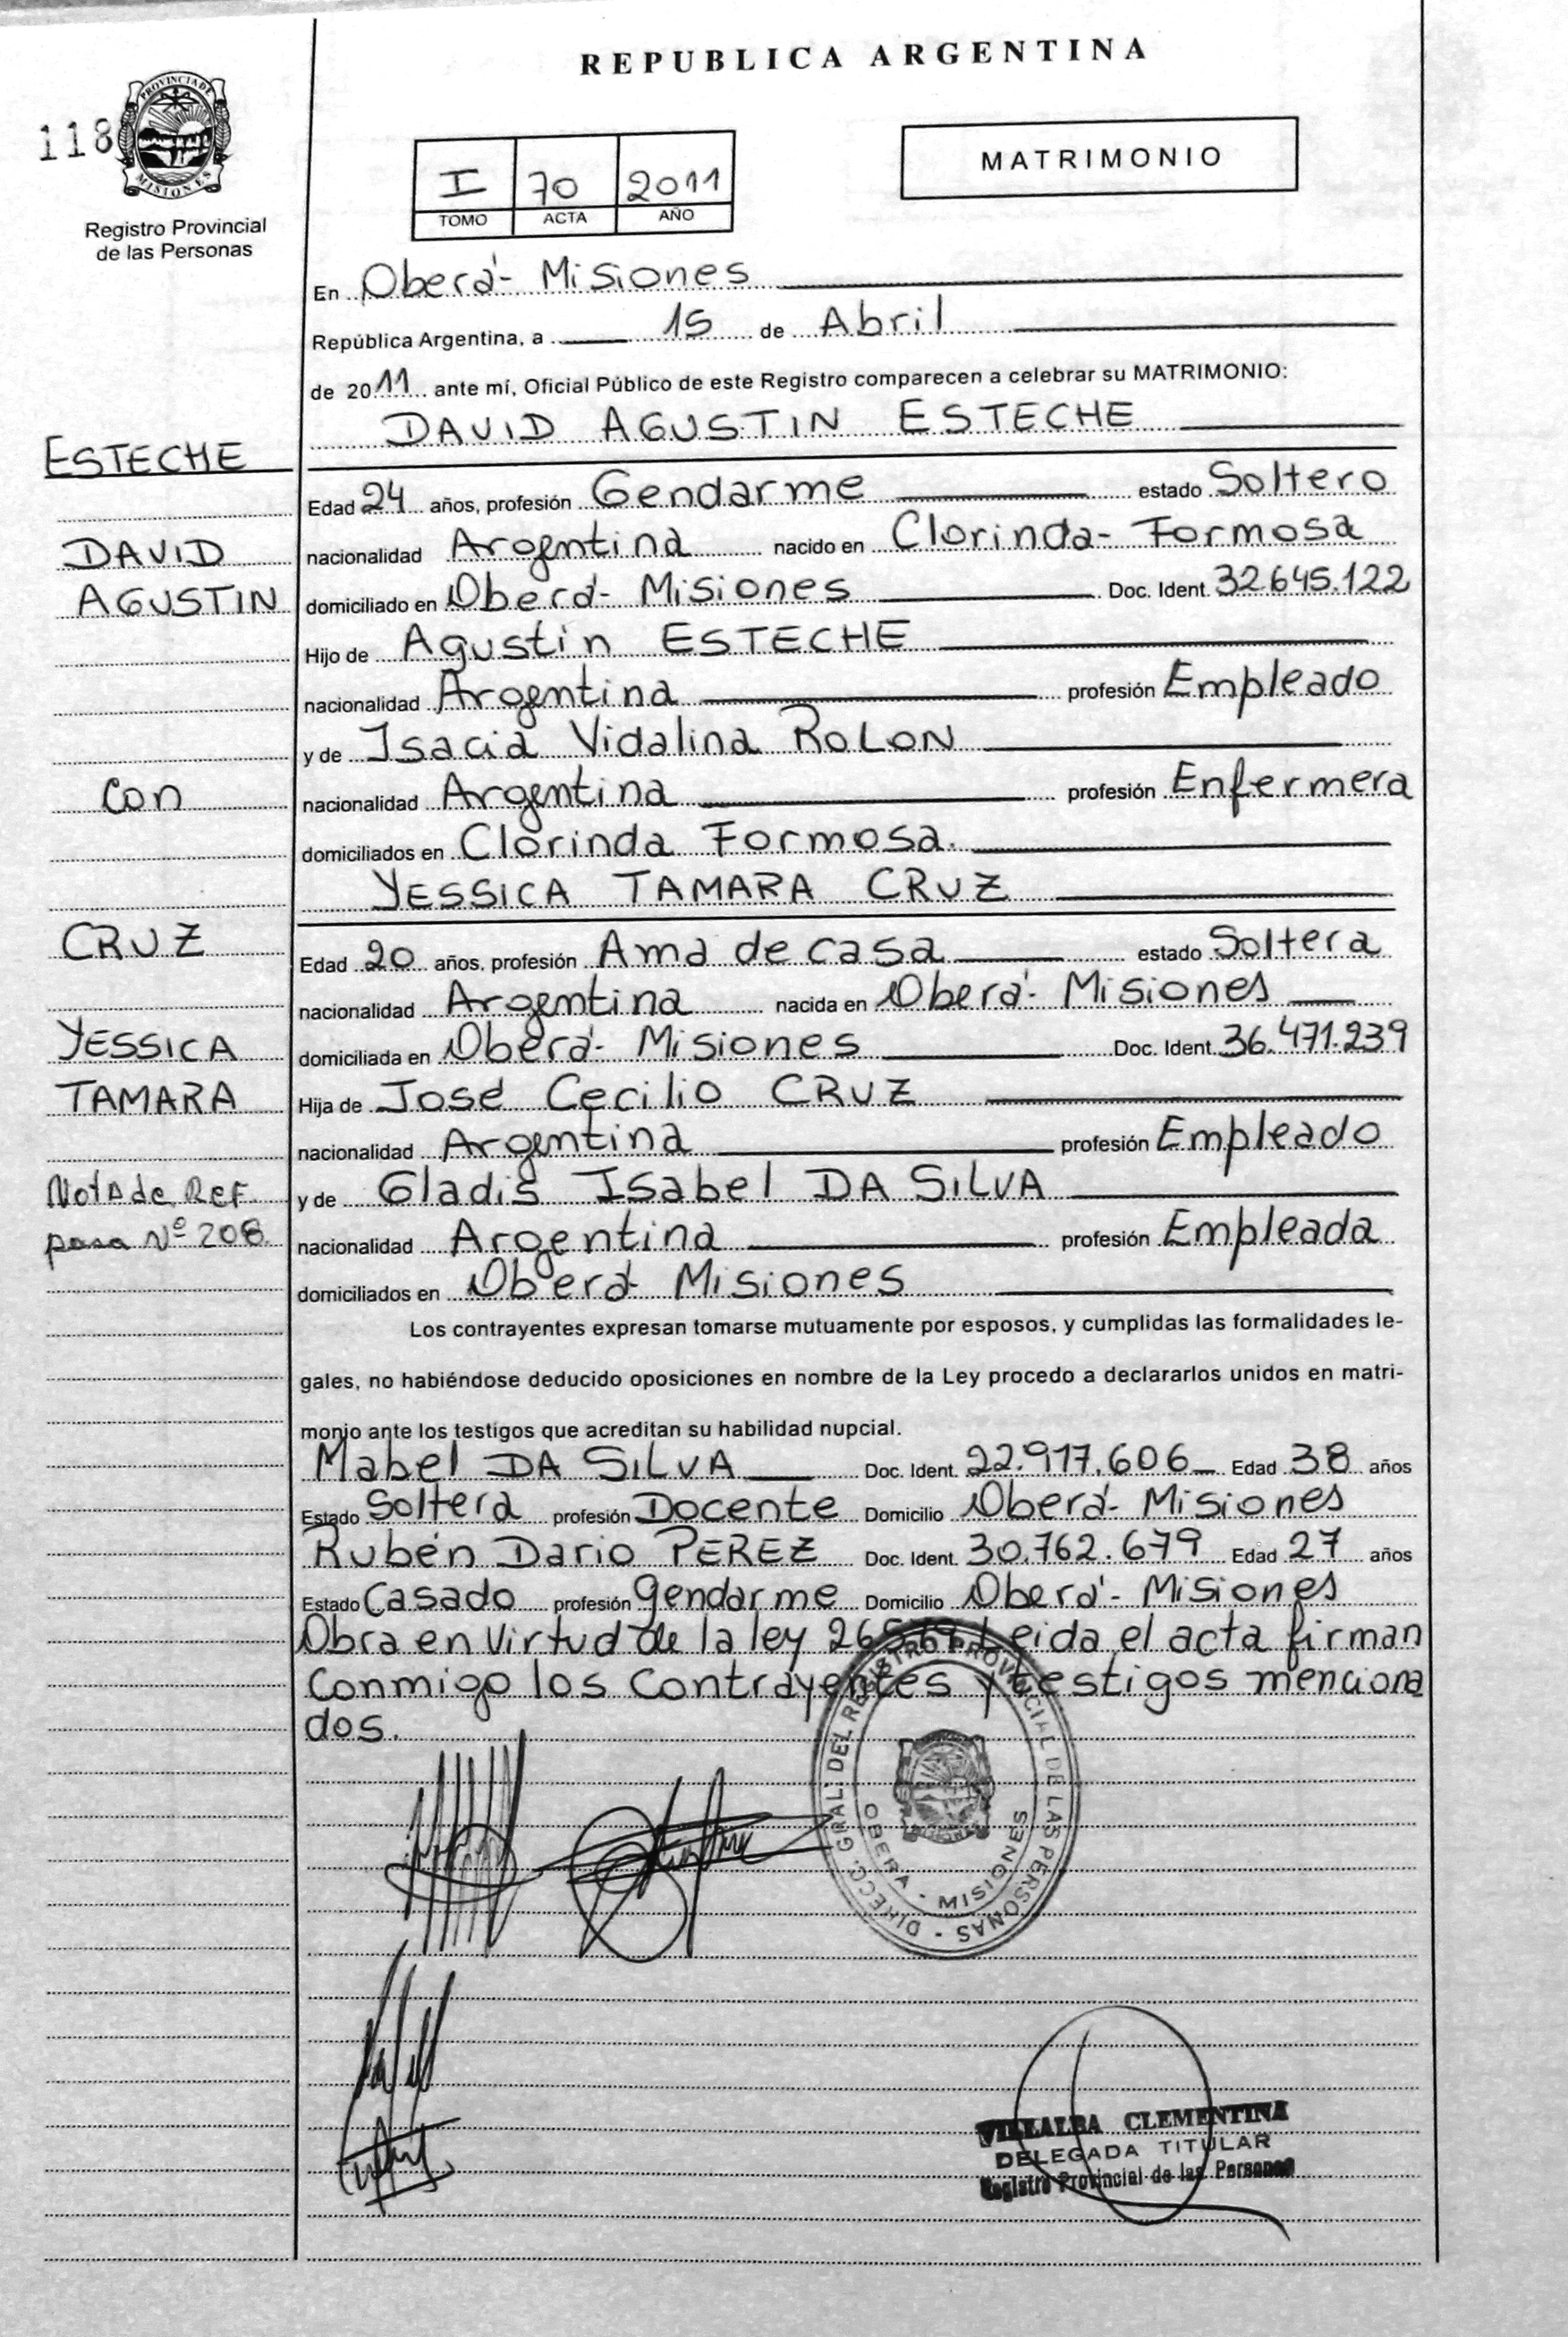 REPUBLICA ARGENTINA
118
PROVINCIA DE
MISIONES
Registro Provincial
de las Personas
I 70 2011
TOMO ACTA AÑO
MATRIMONIO
En Oberá- Misiones
República Argentina, a 15 de Abril
de 2011 ante mí, Oficial Público de este Registro comparecen a celebrar su MATRIMONIO:
DAVID AGUSTIN ESTECHE
ESTECHE
Edad 24 años, profesión Gendarme estado Soltero
DAVID
nacionalidad Argentina nacido en Clorinda- Formosa
AGUSTIN
domiciliado en Oberá- Misiones Doc. Ident. 32.645.122
Hijo de Agustin ESTECHE
nacionalidad Argentina profesión Empleado
y de Isacia Vidalina ROLON
con
nacionalidad Argentina profesión Enfermera
domiciliados en Clorinda Formosa.
YESSICA TAMARA CRUZ
CRUZ
Edad 20 años, profesión Ama de casa estado Soltera
nacionalidad Argentina nacida en Oberá- Misiones
YESSICA
domiciliada en Oberá- Misiones Doc. Ident. 36.471.239
TAMARA
Hija de José Cecilio CRUZ
nacionalidad Argentina profesión Empleado
Nota de Ref.
y de Gladis Isabel DA SILVA
pasa Nº 208
nacionalidad Argentina profesión Empleada
domiciliados en Oberá- Misiones
Los contrayentes expresan tomarse mutuamente por esposos, y cumplidas las formalidades le-
gales, no habiéndose deducido oposiciones en nombre de la Ley procedo a declararlos unidos en matri-
monio ante los testigos que acreditan su habilidad nupcial.
Mabel DA SILVA Doc. Ident. 22.917.606 Edad 38 años
Estado Soltera profesión Docente Domicilio Oberá- Misiones
Rubén Dario PEREZ Doc. Ident. 30.762.679 Edad 27 años
Estado Casado profesión gendarme Domicilio Oberá- Misiones
Obra en Virtud de la ley Leida el acta firman
Conmigo los Contrayentes y testigos menciona
dos.
DIRECC. GRAL. DEL REGISTRO PROVINCIAL DE LAS PERSONAS
OBERA - MISIONES
VILLALBA CLEMENTINA
DELEGADA TITULAR
Registro Provincial de las Personas